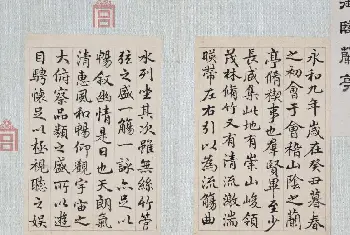 臨蘭亭
永和九年歲在癸丑暮春
之初會于會稽山陰之蘭
亭脩稧事也羣賢畢至少
長咸集此地有崇山峻領
茂林脩竹又有清流激湍
暎帶左右引以為流觴曲
水列坐其次雖無絲竹管
弦之盛一觴一詠亦足以
暢敘幽情是日也天朗氣
清惠風和暢仰觀宇宙之
大俯察品類之盛所以遊
目騁懷足以極視聽之娛